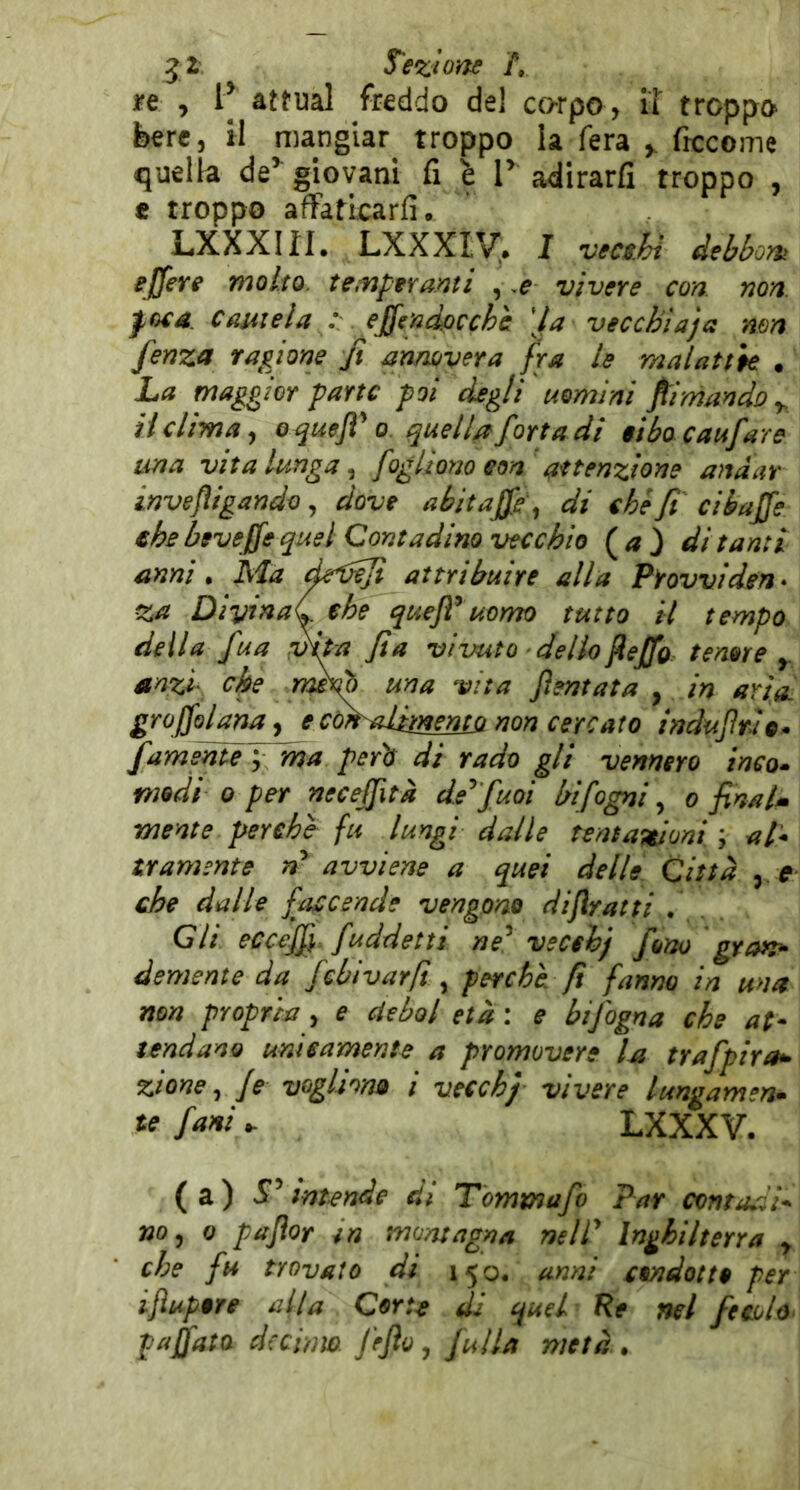 32 Sezione I.
re , l' attual freddo del corpo, il troppo
bere, il mangiar troppo la ſera , ſiccome
quella de' giovani ſi è l' adirarſi troppo ,
e troppo affaticarſi.
LXXXIII. LXXXIV. I vecchi debbon
eſſere molto temperanti , e vivere con non
poca cautela : eſſendocchè la vecchiaja non
ſenza ragione ſi annovera fra le malattie .
La maggior parte poi degli uomini ſtimando ,
il clima, o queſt' o quella ſorta di cibo cauſare
una vita lunga , ſogliono con attenzione andar
inveſtigando , dove abitaſſe, di che ſi cibaſſe
che beveſſe quel Contadino vecchio ( a ) di tanti
anni . Ma deveſi attribuire alla Provviden-
za Divina, che queſt' uomo tutto il tempo
della ſua vita ſia vivuto dello ſteſſo tenore ,
anzi che menò una vita ſtentata , in aria
groſſolana , e con alimento non cercato induſtrio-
ſamente ; ma però di rado gli vennero inco-
modi o per neceſſità de' ſuoi biſogni , o final-
mente perchè fu lungi dalle tentazioni ; al-
tramente n' avviene a quei delle Città , e
che dalle faccende vengono diſtratti .
Gli ecceſſi ſuddetti ne' vecchj ſono gran-
demente da ſchivarſi , perchè ſi fanno in una
non propria , e debol età : e biſogna che at-
tendano unicamente a promovere la traſpira-
zione , ſe vogliono i vecchj vivere lungamen-
te ſani . LXXXV.
( a ) S' intende di Tommaſo Par contadi-
no , o paſtor in montagna nell' Inghilterra ,
che fu trovato di 150. anni condotto per
iſtupore alla Corte di quel Re nel ſecolo
paſſato decimo ſeſto , ſulla metà .